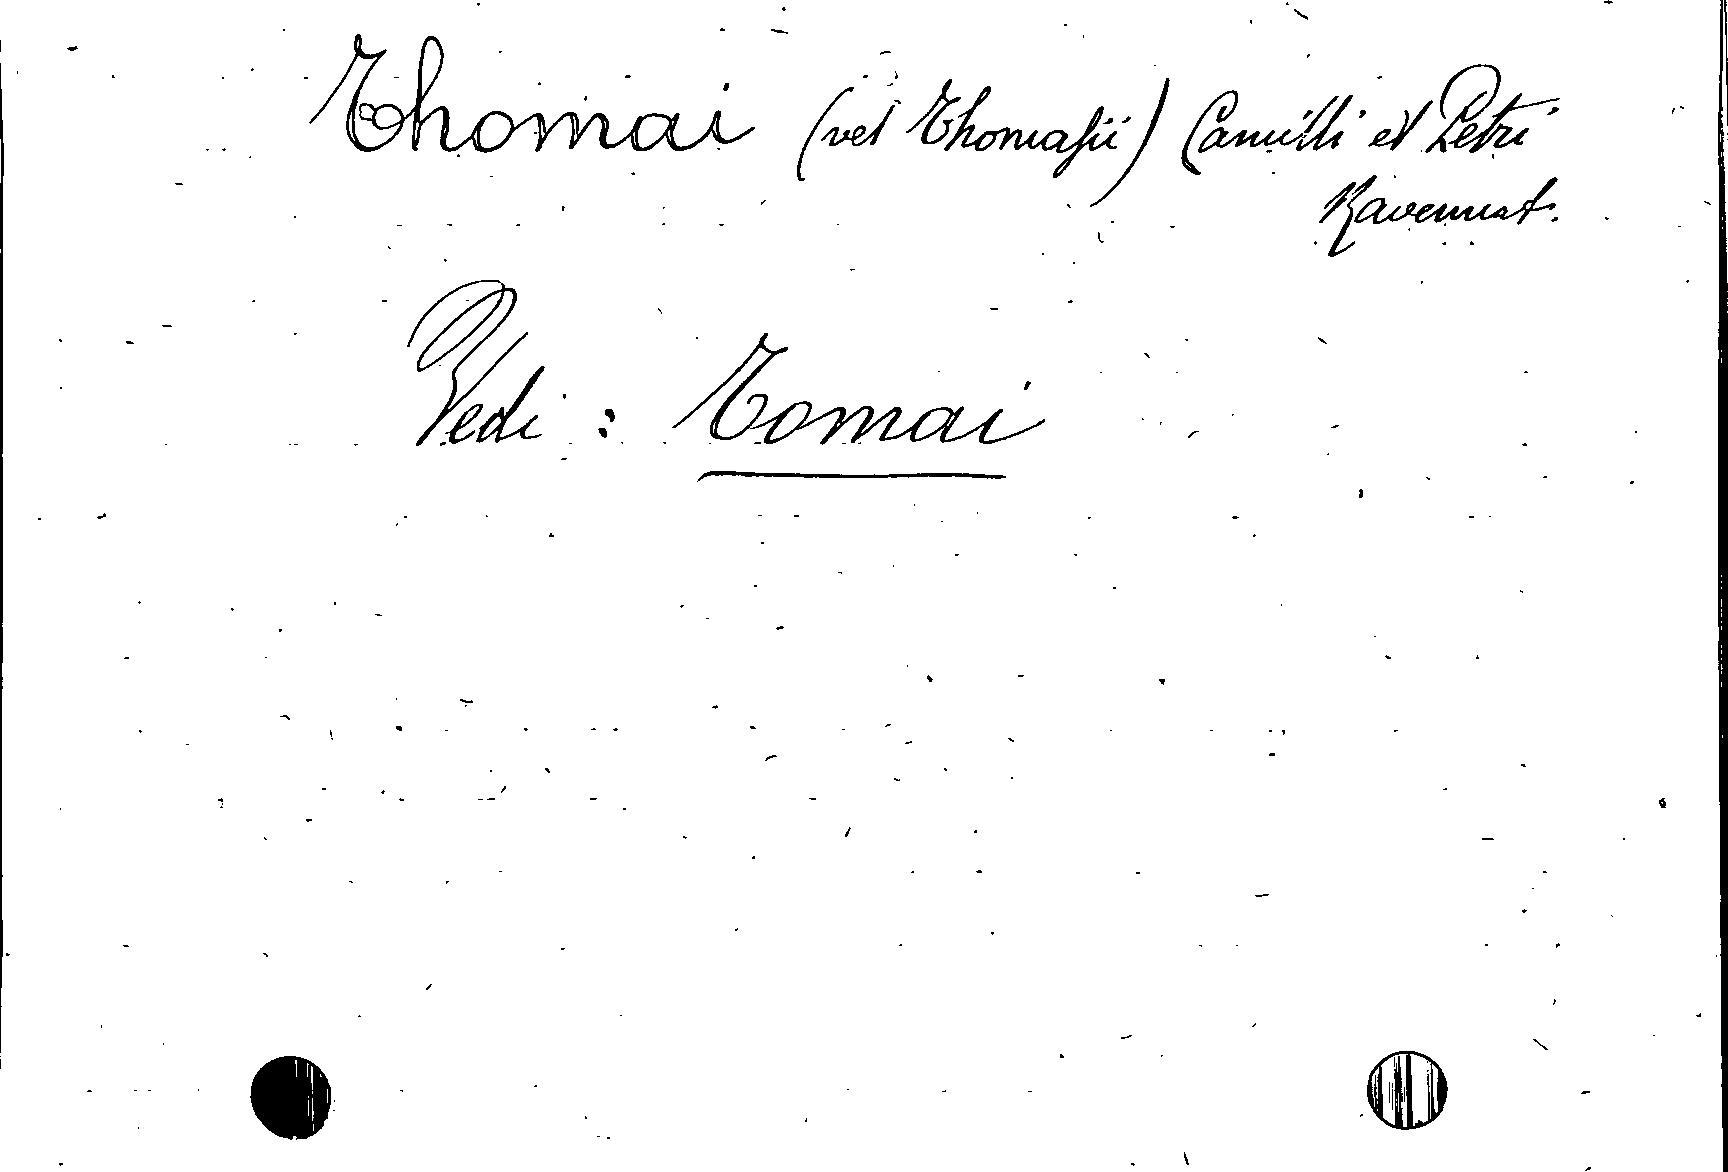 Thomai (vel Thomasii) Camilli et Petri
Ravennat.
Vedi : Tomai